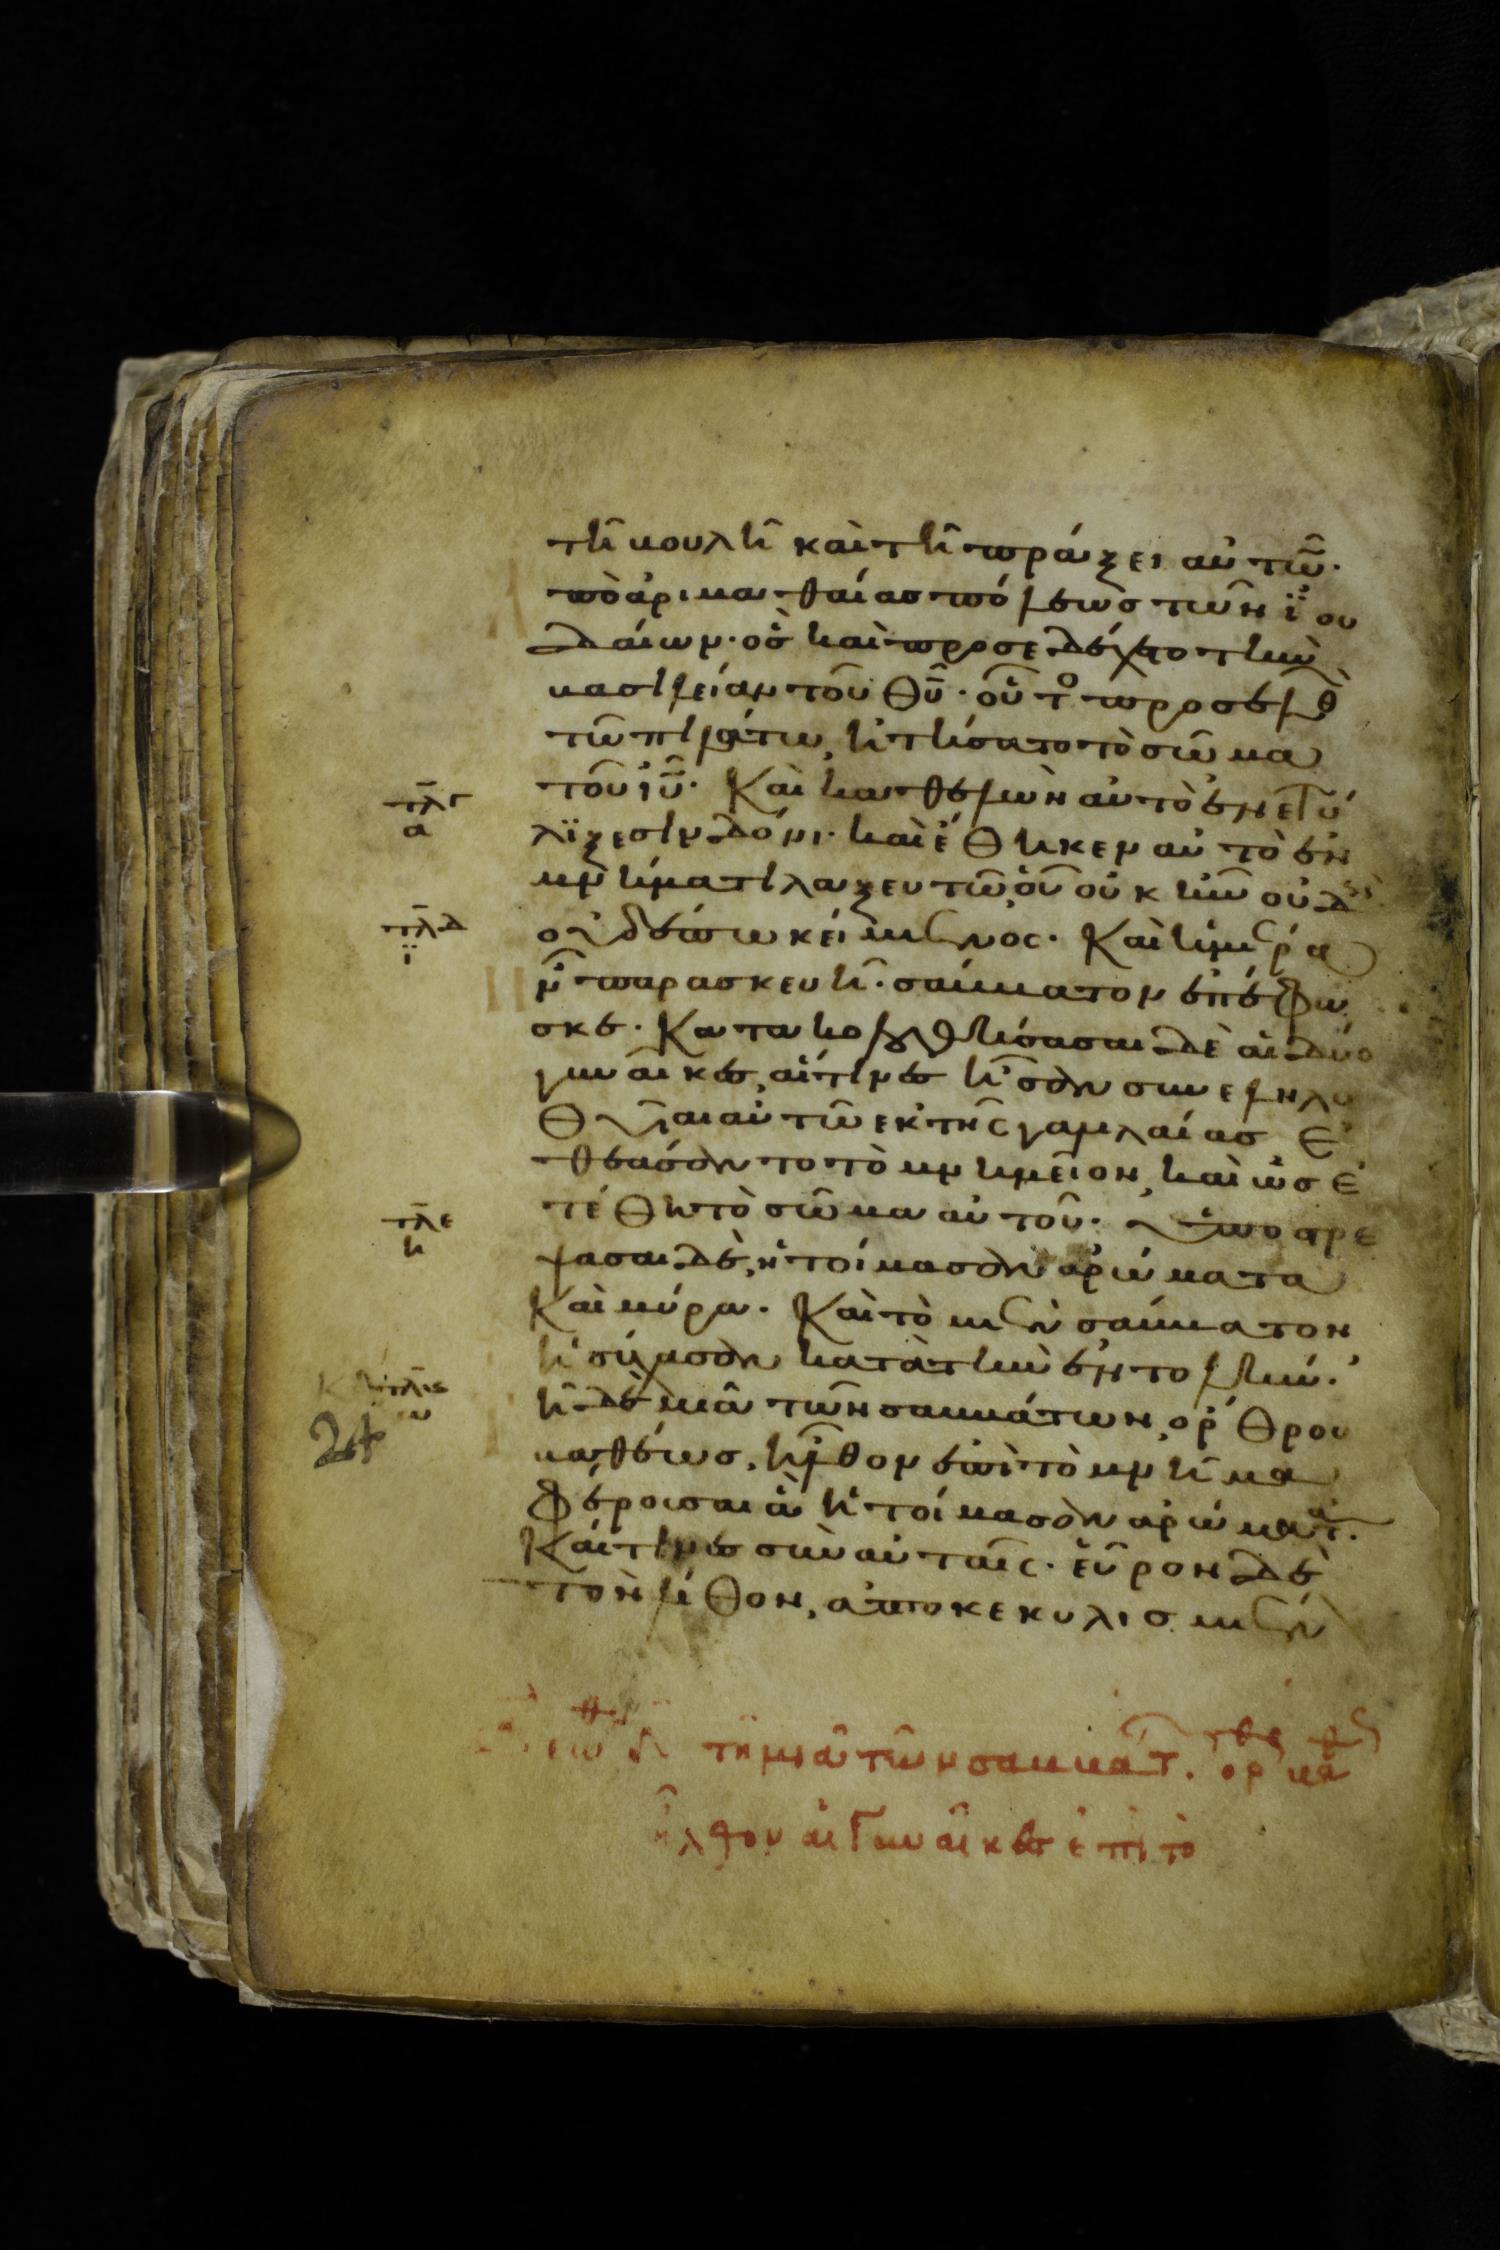 τῆ βουλῆ καὶ τῆ πράξει αὐτῶ̅·
πὸ ἀριμαθαίας πόλεως τῶν ἰ̈ου
δαίων· ὃς καὶ προσεδέχετο τὴν
βασιλείαν τοῦ θυ̅· οὗτο προσελθ
τῶ πιλάτω, ἠτήσατο τὸ σῶμα
τλγ
α
τοῦ ιυ̅· Καὶ καθελὼν αὐτὸ ἐνετύ
λϊξε σινδόνι· καὶ ἔθηκεν αὐτὸ ἐν
μνήματι λαξευτῶ, οὗ οὐκ ἦν οὐδ
τλδ
ϊ
οὐδέπω κείμενος· Καὶ ἡμέρα
ἦν παρασκευῆ· σάββατον ἐπέφω
σκε· Κατακολουθήσασαι δὲ αἱ δύο
γυναῖκες, αἵτινες ἦσαν συνεληλυ
θυῖαι αὐτῶ ἐκ τῆς γαλιλαίας ἐ
θεάσαντο τὸ μνημεῖον, καὶ ὡς ἐ
τλε
η
τέθη τὸ σῶμα αὐτοῦ· ὑποστρέ
ψασαι δὲ, ἡτοίμασαν ἀρώματα
Καὶ μύρα· Καὶ τὸ μὲν σάββατον
ἡσύχασαν κατὰ τὴν ἐντολήν·
τλς
24
ἡ δὲ μιᾶ τῶν σαββάτων, ὄρθρου
βαθέως, ἦλθον ἐπὶ τὸ μνῆμα
φέρουσαι ἃ ἡτοίμασαν ἀρώματ·
Καί τινες σὺν αὐταῖς· εὗρον δὲ
τὸν λίθον, ἀποκεκυλισμένον
τῆ μιᾶ τῶν σαββάτ. ὀρ βα
ἦλθον αἱ Γυναῖκες ἐπὶ τὸ